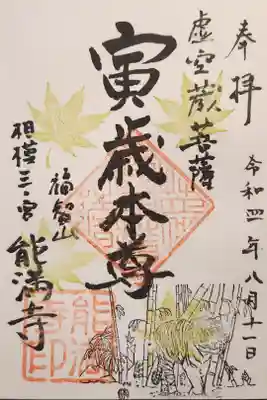 奉拝
令和四年八月十一日
虚空蔵菩薩
寅歳本尊
福智山
相模三ノ宮
能満寺
能満寺印